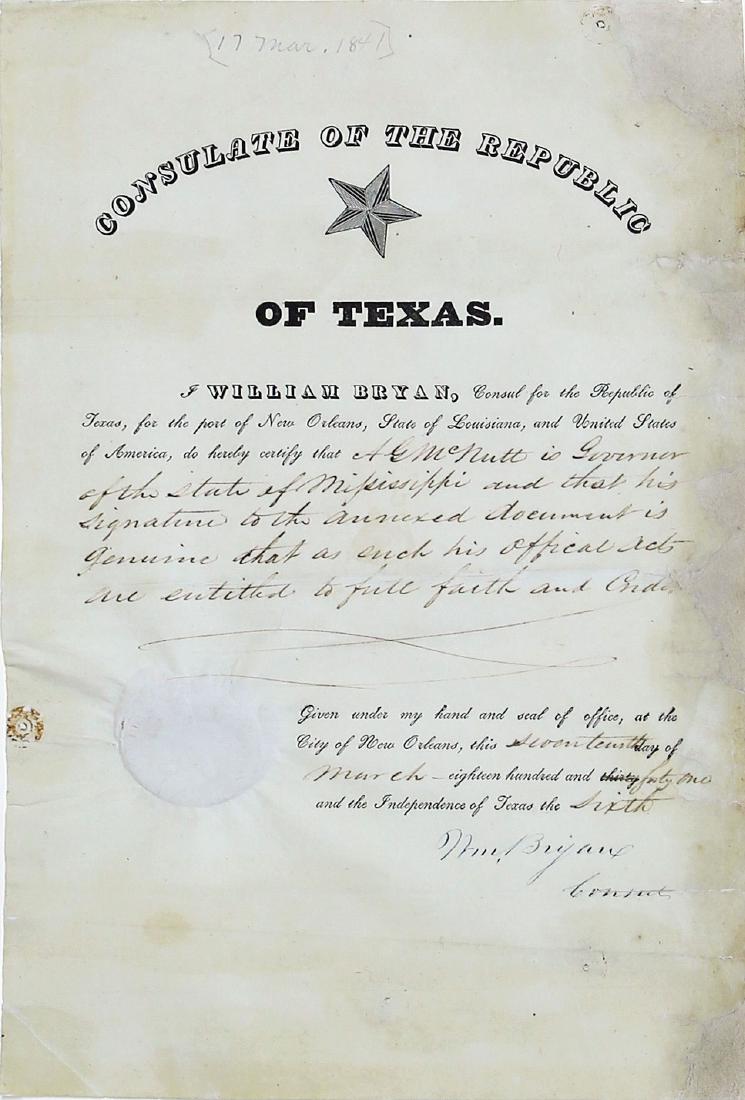 [17 Mar. 1841]
CONSULATE OF THE REPUBLIC
OF TEXAS.
I WILLIAM BRYAN, Consul for the Republic of
Texas, for the port of New Orleans, State of Louisiana, and United States
of America, do hereby certify that A G McNutt is Governor
of the State of Mississippi and that his
signature to the annexed document is
genuine that as such his offical acts
are entitled to full faith and
Given under my hand and seal of office, at the
City of New Orleans, this seventeenth day of
March eighteen hundred and thirty forty one
and the Independence of Texas the Sixth
Wm. Bryan
Consul